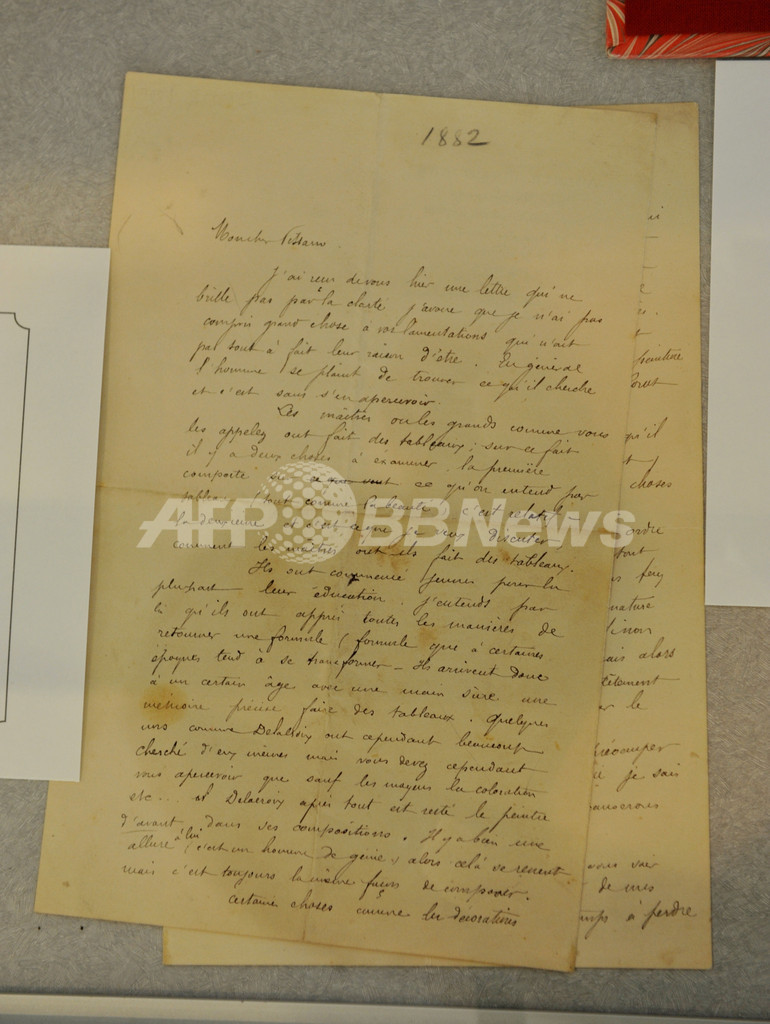 1882
Mon cher Pissarro
J'ai reçu de vous hier une lettre qui ne
brille pas par la clarté j'avoue que je n'ai pas
compris grand chose à vos lamentations qui n'ont
pas tout à fait leur raison d'être. En général
l'homme se plaint de trouver ce qu'il cherche
et c'est sans s'en apercevoir.
Les maîtres ou les grands comme vous
les appelez ont fait des tableaux; sur ce fait
il y a deux choses à examiner, la première
comporte ce qu'on entend par
tableau (tout comme la beauté c'est relatif
la deuxième et c'est je veux discuter
comment les maîtres ont ils fait des tableaux.
Ils ont commencé jeunes pour la
plupart leur éducation. j'entends par
là qu'ils ont appris toutes les manières de
retourner une formule (formule que à certaines
époques tend à se transformer - Ils arrivent donc
à un certain âge avec une main sûre une
mémoire précise faire des tableaux. Quelques
uns comme Delacroix ont cependant beaucoup
cherché d'eux mêmes mais vous devez cependant
vous apercevoir que sauf les moyens la coloration
etc... Delacroix après tout est resté le peintre
d'avant dans ses compositions. Il y a bien une
allure à lui (c'est un homme de génie) alors celà se ressent
mais c'est toujours la même façon de composer.
certaine choses comme les décorations
peinture
qu'il
choses
ordre
tout
nature
sinon
mais alors
le
je sais
vous voir
de mes
temps à perdre
AFPBBNews